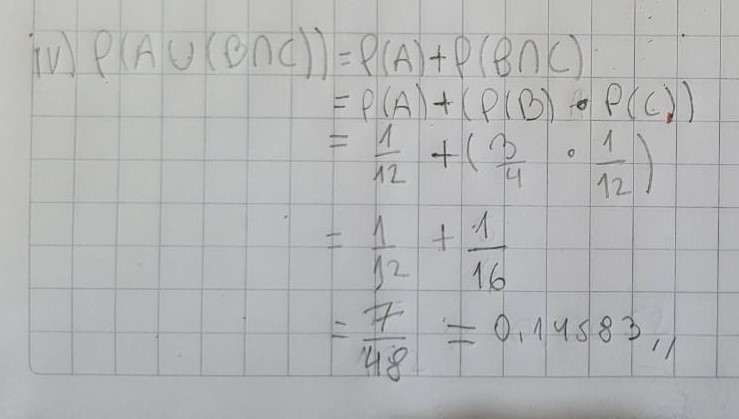 iv) P(A ∪ (B∩C)) = P(A) + P(B∩C)
= P(A) + (P(B) • P(C))
= 1/12 + (3/4 • 1/12)
= 1/12 + 1/16
= 7/48 = 0,14583,,